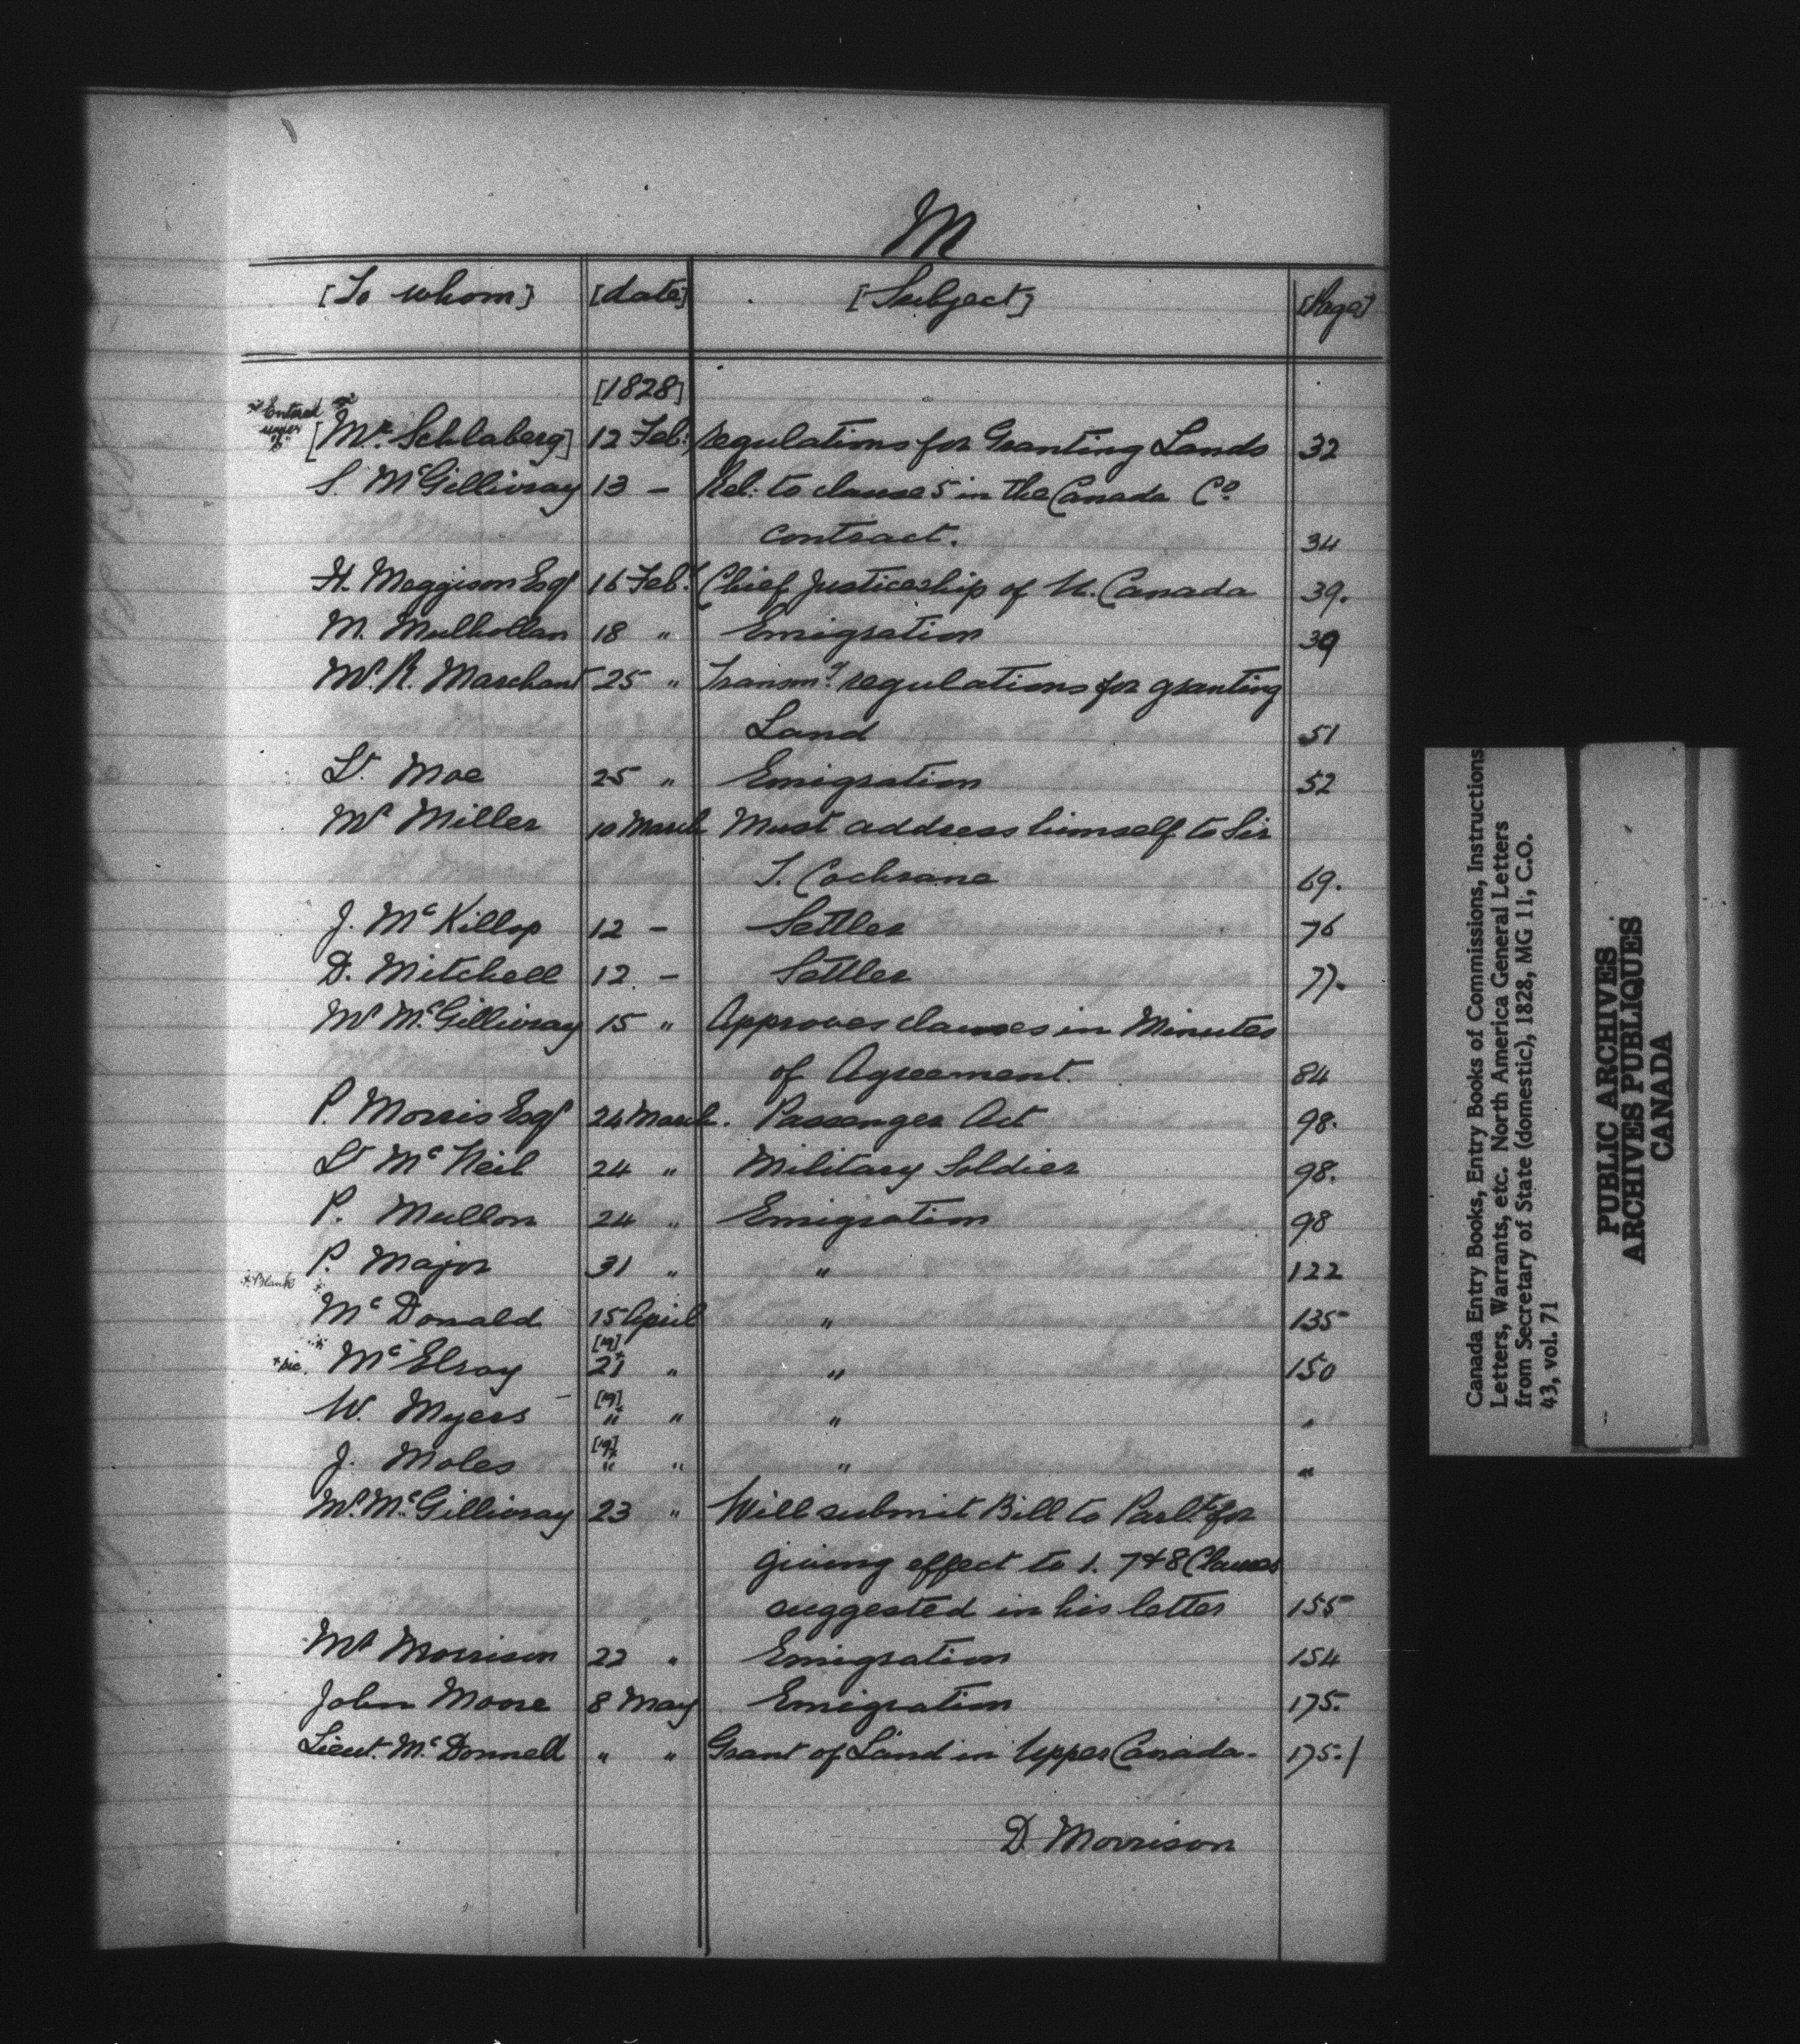 M
[To whom] [date] [Subject] [Page]
[1828]
* Entered
under
"S"
[Mr. Schlaberg] 12 Feb: regulations for Granting Lands 32
S. McGillivray 13 - Rel: to clause 5 in the Canada Co
contract. 34
H. Meggison Esqr 16 Feb. Chief Justiceship of U. Canada 39.
M. Mulhollan 18 " Emigration 39
Mr. R. Marchant 25 " Transmg regulations for granting
Land 51
Lt. Moe 25 " Emigration 52
Mr Miller 10 March Must address himself to Sir
T. Cochrane 69.
J. McKillop 12 - Settler 76
D. Mitchell 12. - Settler 77.
Mr McGillivray 15 " Approves clauses in Minutes
of Agreement. 84
P. Morris Esqr 24 March. Passenger Act 98.
Lt McNeil 24 " Military Soldier 98.
P. Mullon 24 " Emigration 98
P. Major 31 " " 122
* Blank *
McDonald 15 April " 135
* sic. * McElroy [19] 21* " " 150
W. Myers - [19] "* " " "
J. Moles [19] "* " " "
Mr. McGillivray 23 " Will submit Bill to Parlt for
giving effect to 1. 7 & 8 Clauses
suggested in his letter 155
Mr Morrison 22 " Emigration 154
John Moore 8 May Emigration 175.
Lieut. McDonnell " " Grant of Land in Upper Canada. 175./
D. Morrison
Canada Entry Books, Entry Books of Commissions, Instructions
Letters, Warrants, etc. North America General Letters
from Secretary of State (domestic), 1828, MG 11, C.O.
43, vol. 71
PUBLIC ARCHIVES
ARCHIVES PUBLIQUES
CANADA